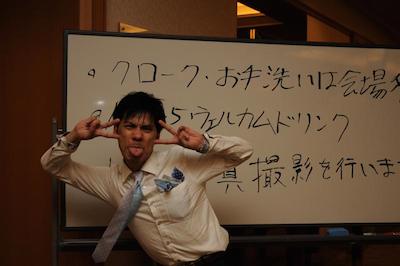 クローク・お手洗いは会場
5 ウェルカムドリンク
真撮影を行いま